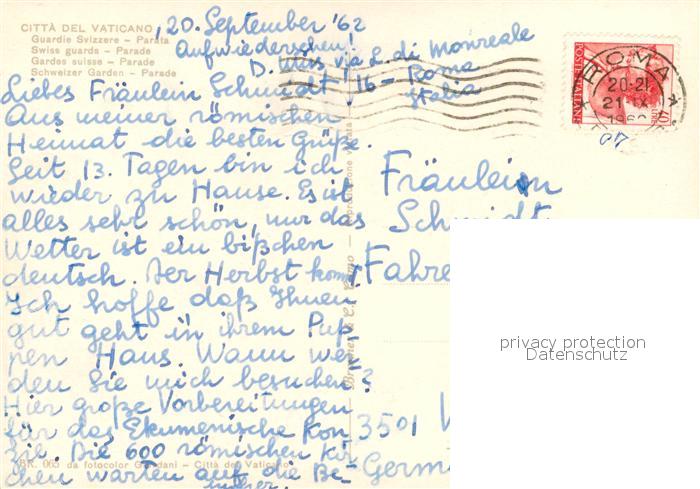 CITTÀ DEL VATICANO
Guardie Svizzere – Parata
Swiss guards – Parade
Gardes suisse – Parade
Schweizer Garden – Parade
20. September '62
Aufwiederschen!
D. via L. di Monreale
16 – Roma
Italia
Liebes Fräulein Schmidt
Aus meiner römischen
Heimat die besten Grüße.
Seit 13. Tagen bin ich
wieder zu Hause. Es ist
alles sehr schön, nur das
Wetter ist ein bißchen
deutsch. Der Herbst kommt.
Ich hoffe daß Ihnen
gut geht in ihrem Pup-
pen Haus. Wann wer-
den Sie mich besuchen?
Hier große Vorbereitungen
für das Ekumenische Kon
zie. Die 600 römischen Kir
chen warten auf die Be
sucher.
BK. 065 da fotocolor Giordani – Città del Vaticano
POSTE ITALIANE
ROMA
20-21
21 IX
Fräulein
Schmidt
Fahre
3501
Germ
privacy protection
Datenschutz